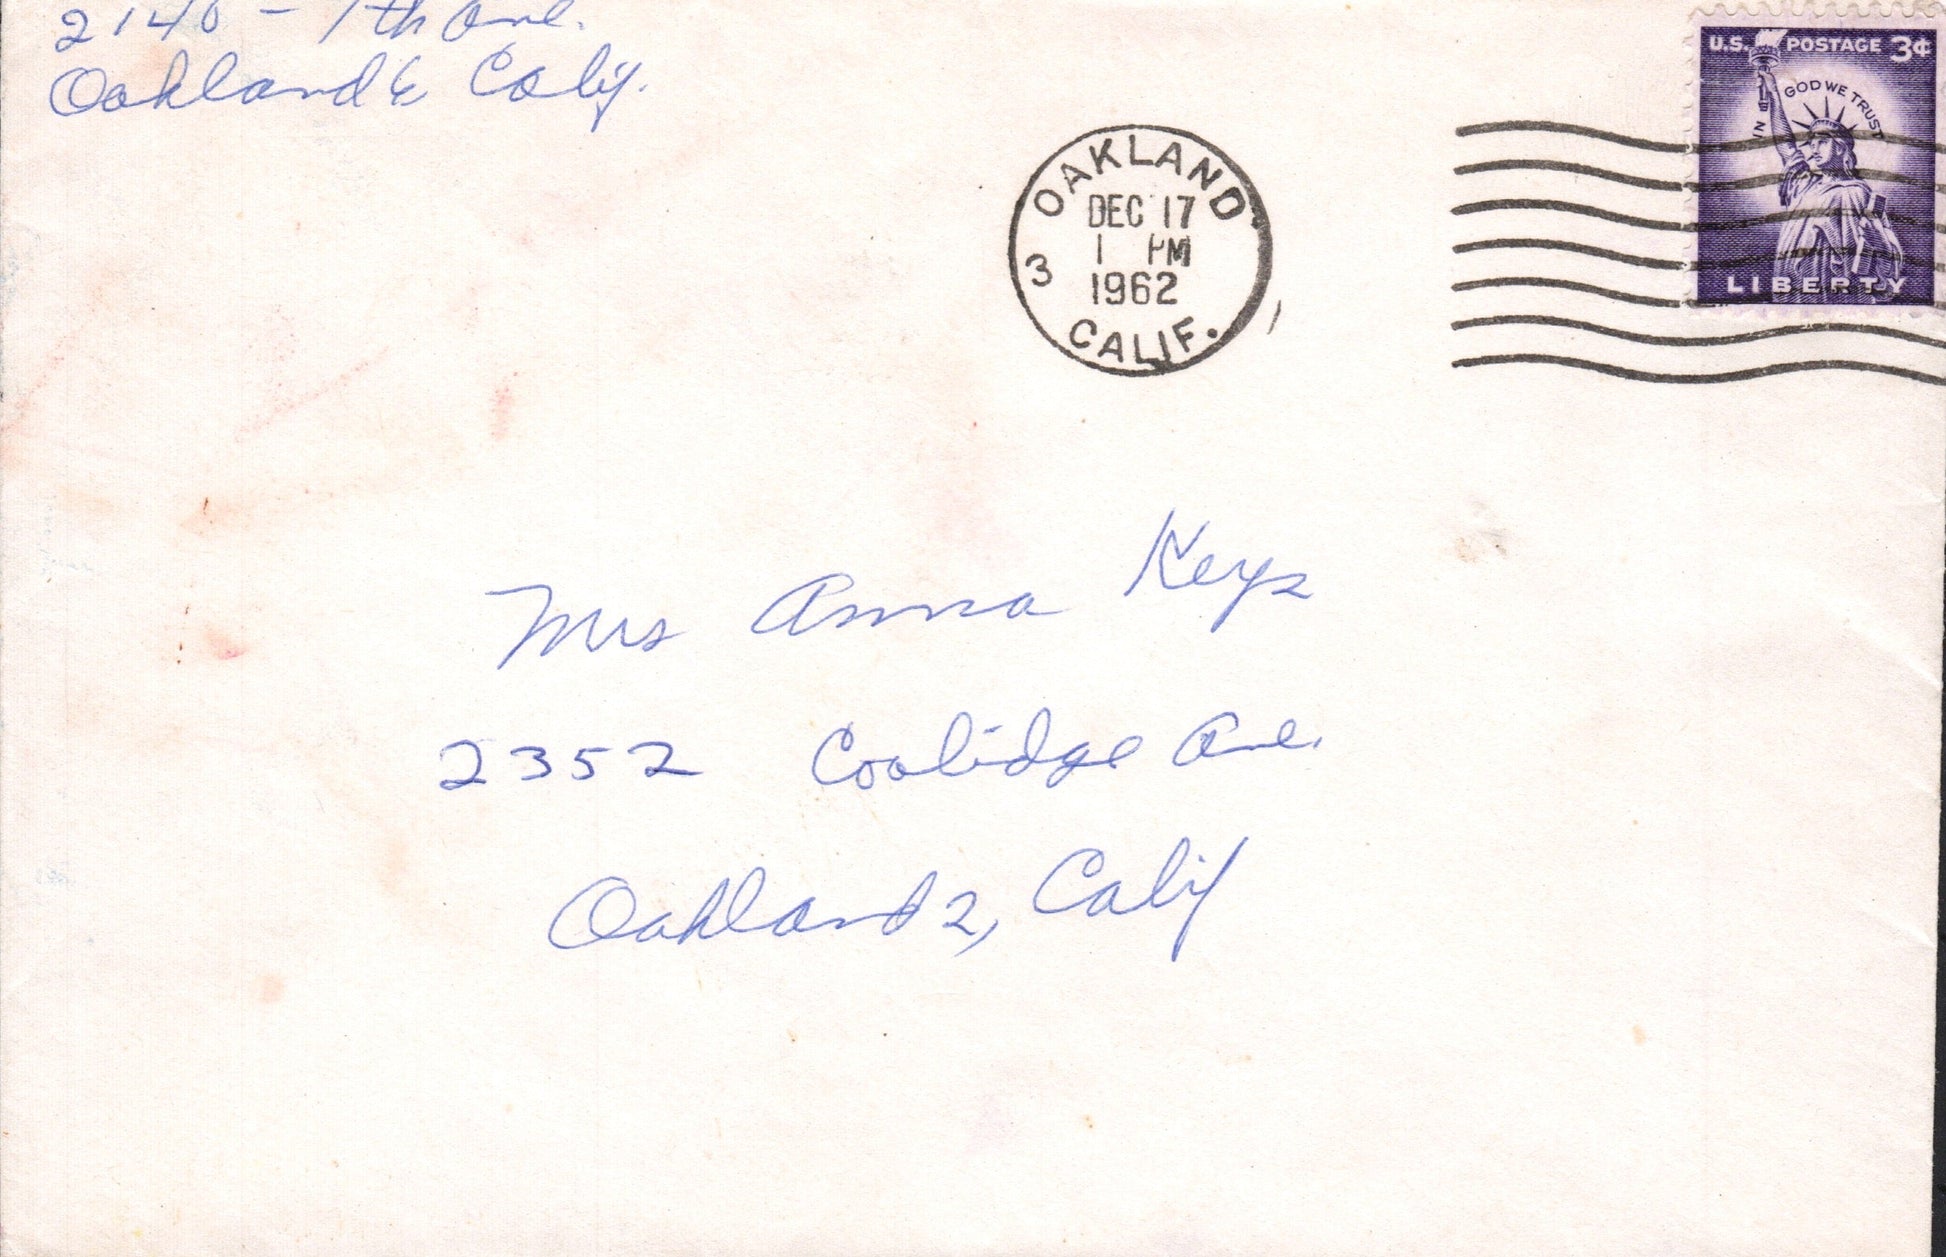 2140 - 7th Ave.
Oakland 6 Calif.
U.S. POSTAGE 3¢
IN GOD WE TRUST
LIBERTY
OAKLAND
DEC 17
1 PM
3
1962
CALIF.
Mrs Anna Keys
2352 Coolidge Ave.
Oakland 2, Calif